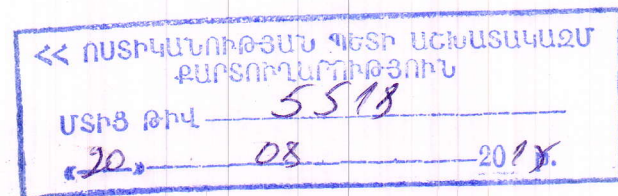 ՀՀ ՈՍՏԻԿԱՆՈՒԹՅԱՆ ՊԵՏԻ ԱՇԽԱՏԱԿԱԶՄ
ՔԱՐՏՈՒՂԱՐՈՒԹՅՈՒՆ
ՄՏԻՑ ԹԻՎ 5518
«20» 08 201 թ.